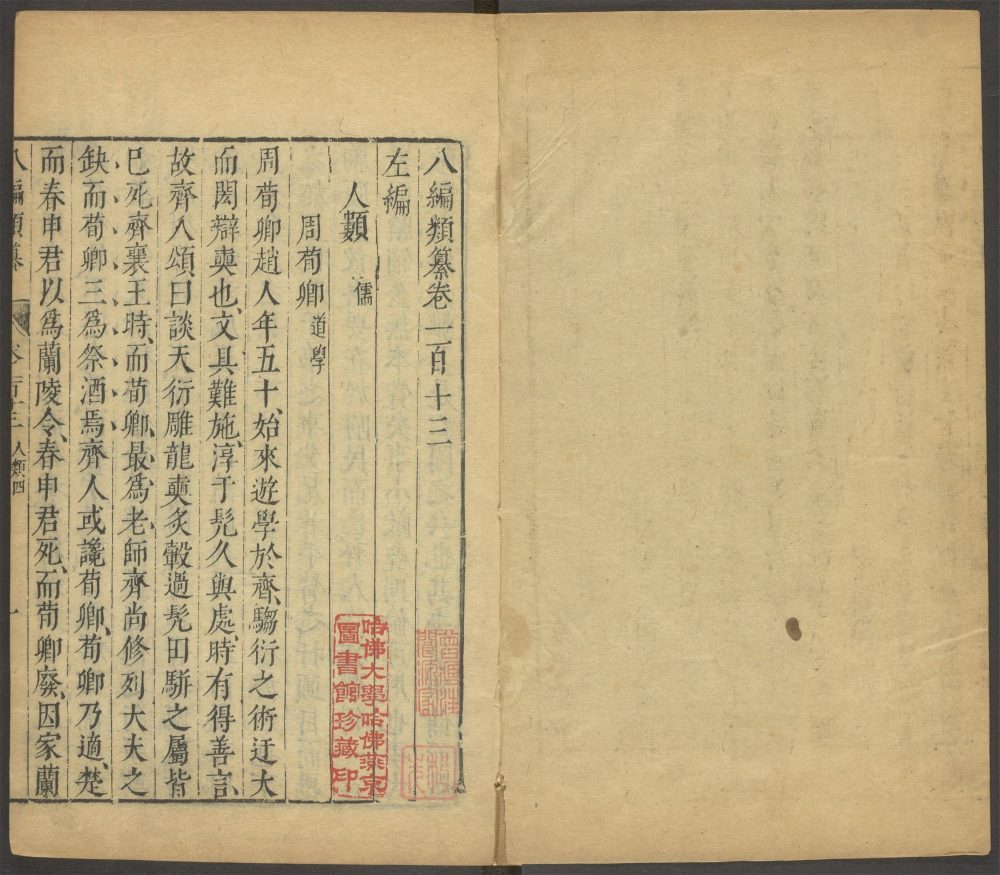 八編類纂卷一百十三
左編
人類 儒
周荀卿 道學
周荀卿趙人年五十、始來遊學於齊、騶衍之術迂大
而閎辯奭也、文具難施、淳于髡久與處、時有得善言、
故齊人頌曰談天衍雕龍奭炙轂過髡田駢之屬皆
已死齊襄王時、而荀卿、最爲老、師齊尚修列大夫之
缺而荀卿三爲祭酒焉齊人或讒荀卿、荀卿乃適、楚、
而春申君以爲蘭陵令、春申君死、而荀卿廢、因家蘭
八編類纂 卷一百十三 人類四 一
哈佛大學哈佛燕京
圖書館珍藏印